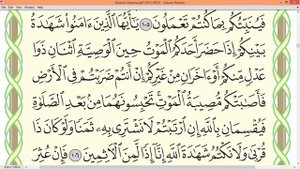 فَيُنَبِّئُكُم بِمَا كُنتُمْ تَعْمَلُونَ ١٠٥ يَٰٓأَيُّهَا ٱلَّذِينَ ءَامَنُوا۟ شَهَٰدَةُ
بَيْنِكُمْ إِذَا حَضَرَ أَحَدَكُمُ ٱلْمَوْتُ حِينَ ٱلْوَصِيَّةِ ٱثْنَانِ ذَوَا
عَدْلٍ مِّنكُمْ أَوْ ءَاخَرَانِ مِنْ غَيْرِكُمْ إِنْ أَنتُمْ ضَرَبْتُمْ فِى ٱلْأَرْضِ
فَأَصَٰبَتْكُم مُّصِيبَةُ ٱلْمَوْتِ تَحْبِسُونَهُمَا مِنۢ بَعْدِ ٱلصَّلَوٰةِ
فَيُقْسِمَانِ بِٱللَّهِ إِنِ ٱرْتَبْتُمْ لَا نَشْتَرِى بِهِۦ ثَمَنًا وَلَوْ كَانَ ذَا
قُرْبَىٰ وَلَا نَكْتُمُ شَهَٰدَةَ ٱللَّهِ إِنَّآ إِذًا لَّمِنَ ٱلْءَاثِمِينَ ١٠٦ فَإِنْ عُثِرَ